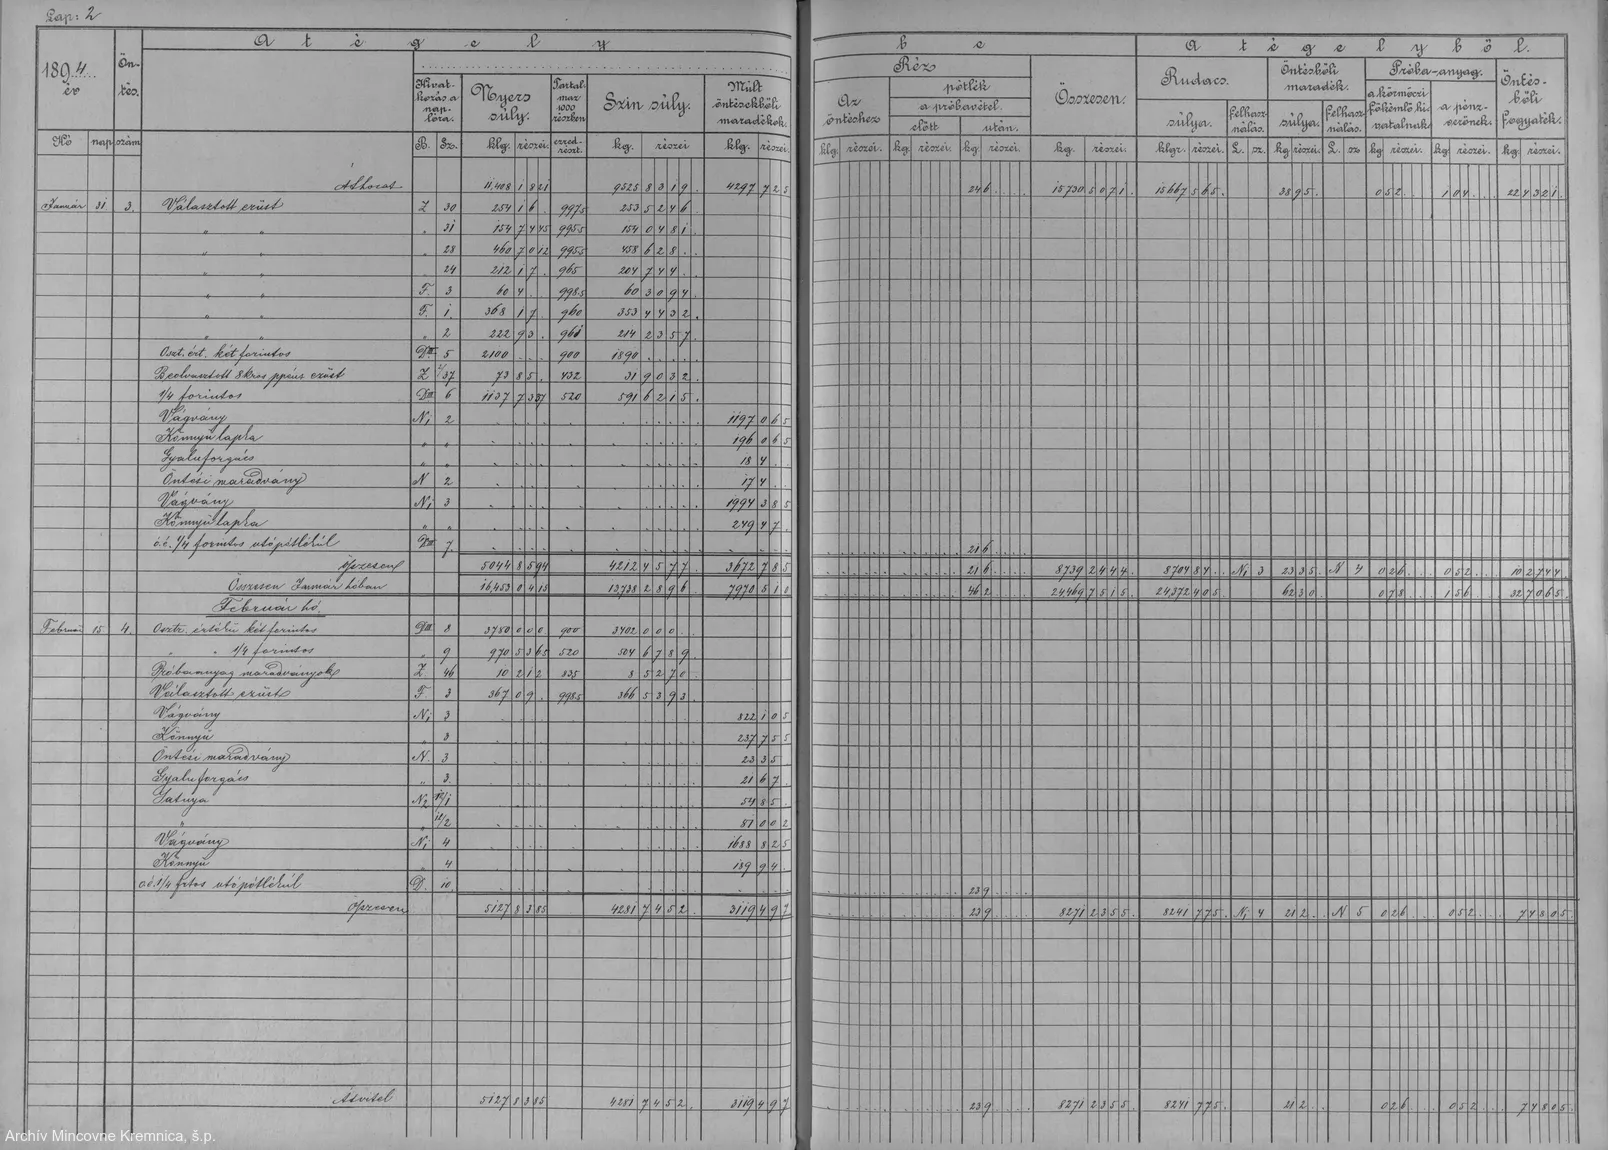 Lap: 2
A tégely
be
A tégelyből.
1894. év
Öntés.
Hivatkozás a naplóra.
Nyers súly.
Tartalmaz 1000 részben
Szin súly.
Múlt öntésekbőli maradékok.
Az öntéshez
Réz
pótlék
a próbavétel
előtt
után.
Összesen.
Rudacs.
súlya.
Felhasználás.
Öntésbőli maradék.
súlya.
Felhasználás.
Próba-anyag.
a körmöczi főkémlő hivatalnak
a pénzverőnek.
Öntésbőli fogyaték.
Hó nap szám B. Sz. klg. részei. ezredrészt. kg. részei klg. részei.
klg. részei. kg. részei. kg részei. kg. részei. klgr. részei. L. sz. kg részei. L. sz kg részei. kg. részei. kg. részei.
Áthozat 11,408 1821 9525 8319 4297 725 246 15730 5071 15667 565 3895 052 104 22 4321
Január 31 3. Választott ezüst Z 30 254 16 9975 253 5246
" " " 31 154 7445 9955 154 0481
" " " 28 460 7012 9955 458 628
" " " 24 212 17 965 204 744
" " F. 3 60 4 9985 60 3094
" " F. 1. 368 17 960 353 4432
" " " 2 222 93 961 214 2357
Oszt. ért. két forintos DIII 5 2100 900 1890
Beolvasztott 8kros ezüst Z 37 73 85 432 31 9032
1/4 forintos DIII 6 1137 7337 520 591 6215
Vágvány N1 2 1197 065
Könnyű lapka " " 196 065
Gyaluforgács " " 18 4
Öntési maradvány N 2 17 4
Vágvány N1 3 1994 385
Könnyű lapka " " 249 47
o.é. 1/4 forintos utópótlékúl DIII 7. 216
Öszesen 5044 8594 4212 4577 3672 785 216 8739 2444 8704 84 N1 3 23 35 N 4 026 052 10 2744
Összesen Január hóban 16,453 0415 13738 2896 7970 510 462 24469 7515 24,372 405 6230 078 156 32 7065
Február hó.
Február 15 4. Osztr. értékű két forintos DIII 8 3780 000 900 3402 000
" " 1/4 forintos " 9 970 5365 520 504 6789
Próbaanyag maradványok Z 46 10 212 835 8 5270
Választott ezüst F 3 367 09 9985 366 5393
Vágvány N1 3 822 105
Könnyű " 3 237 755
Öntési maradvány N. 3 23 35
Gyaluforgács " 3. 21 67
Satnya N2 12/1 54 85
" " 12/2 81 002
Vágvány N1 4 1688 825
Könnyű " 4 189 94
o.é. 1/4 frtos utópótlékúl D. 10 239
Öszesen 5127 8385 4281 7452 3119 497 239 8271 2355 8241 775 N1 4 212 N 5 026 052 7 4805
Átvitel 5127 8385 4281 7452 3119 497 239 8271 2355 8241 775 212 026 052 7 4805
Archív Mincovne Kremnica, š.p.